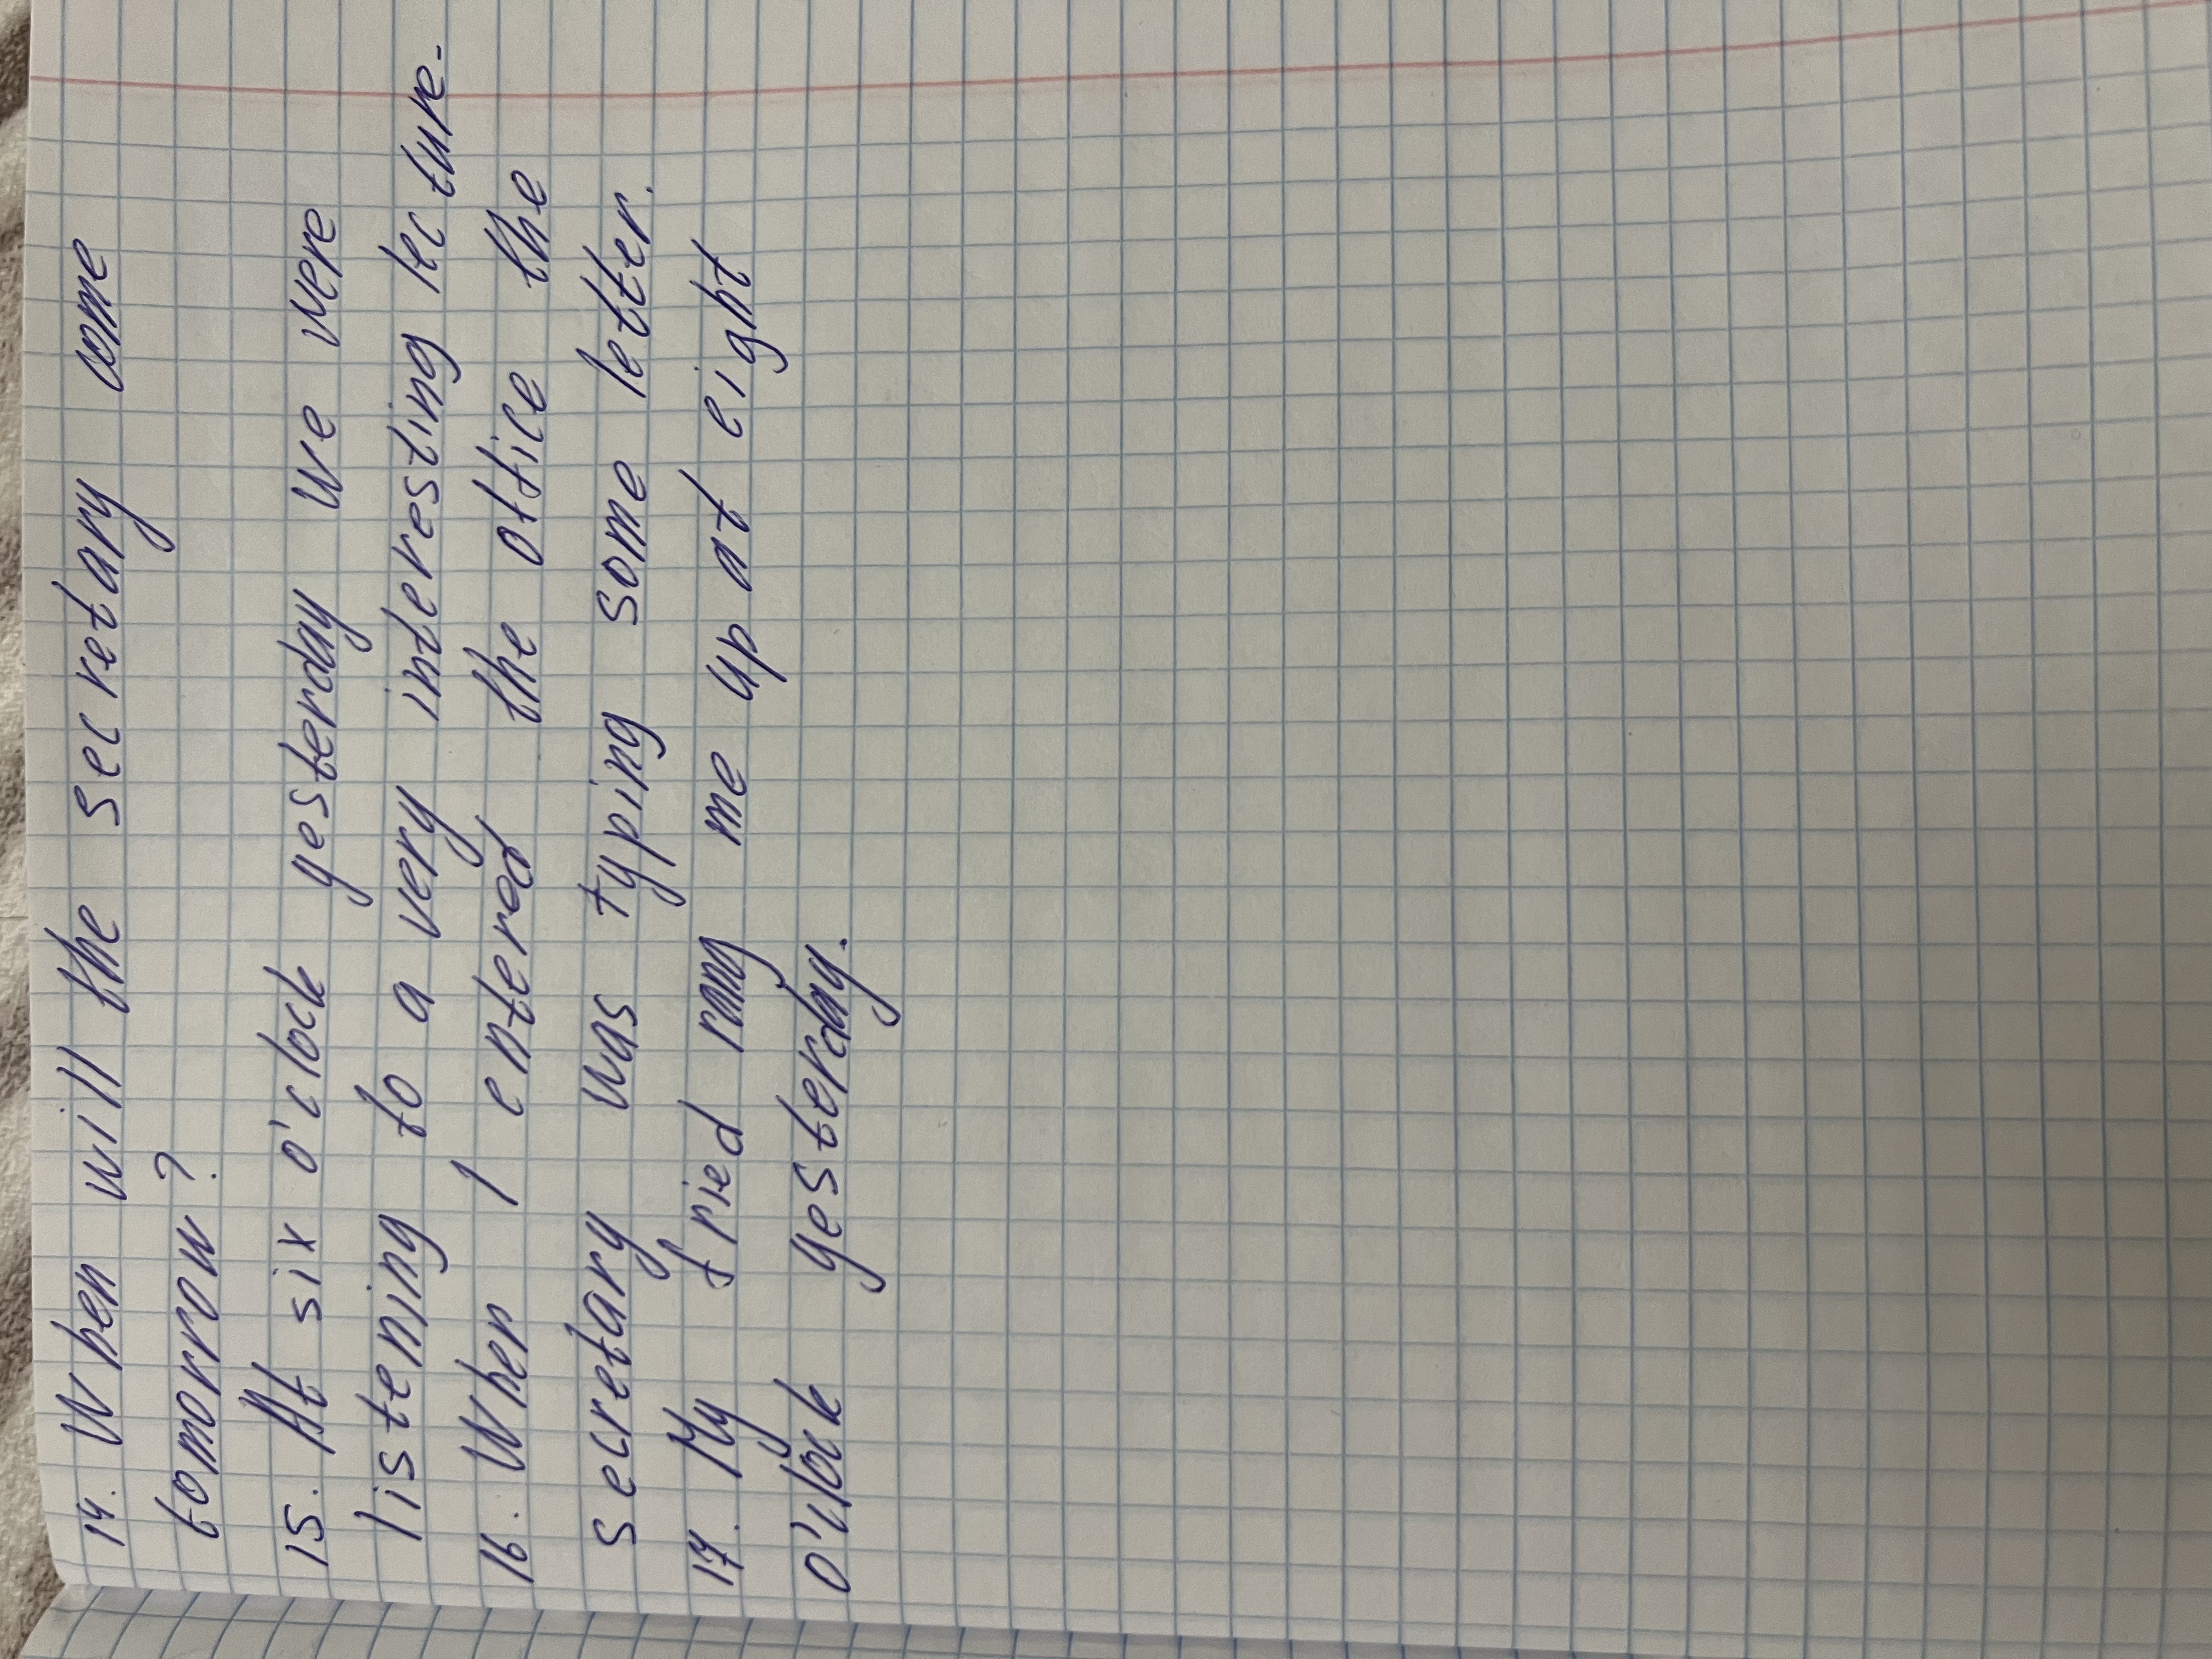 14. When will the secretary come
tomorrow?
15. At six o'clock yesterday we were
listening to a very interesting lecture.
16. When I entered the office the
secretary was typing some letter.
17. My fried rang me up at eight
o'clock yesterday.